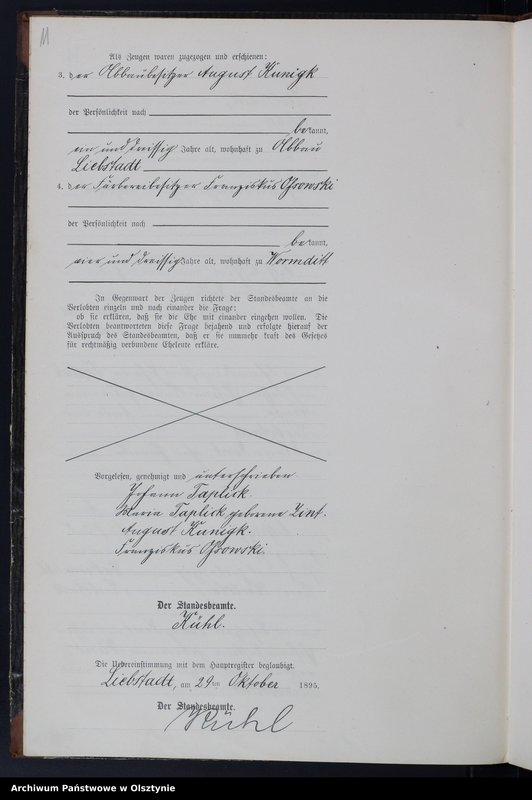 11
Als Zeugen waren zugezogen und erschienen:
3. der Abbaubesitzer August Kunigk
der Persönlichkeit nach
be kannt,
ein und dreissig Jahre alt, wohnhaft zu Abbau
Liebstadt
4. der Färbereibesitzer Franziskus Ossowski
der Persönlichkeit nach
be kannt,
vier und dreissig Jahre alt, wohnhaft zu Wormditt
In Gegenwart der Zeugen richtete der Standesbeamte an die
Verlobten einzeln und nach einander die Frage:
ob sie erklären, daß sie die Ehe mit einander eingehen wollen. Die
Verlobten beantworteten diese Frage bejahend und erfolgte hierauf der
Ausspruch des Standesbeamten, daß er sie nunmehr kraft des Gesetzes
für rechtmäßig verbundene Eheleute erkläre.
Vorgelesen, genehmigt und unterschrieben
Johann Taplick.
Maria Taplick geborene Zint.
August Kunigk.
Franziskus Ossowski.
Der Standesbeamte.
Kühl.
Die Uebereinstimmung mit dem Hauptregister beglaubigt.
Liebstadt, am 29ten Oktober 1895.
Der Standesbeamte.
Kühl
Archiwum Państwowe w Olsztynie